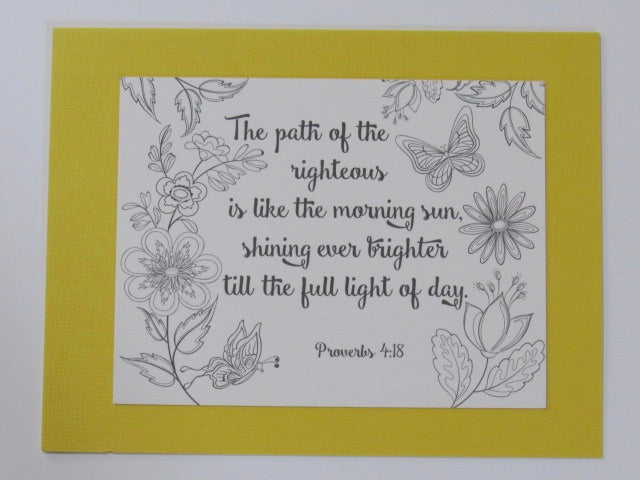 The path of the
righteous
is like the morning sun,
shining ever brighter
till the full light of day.
Proverbs 4:18